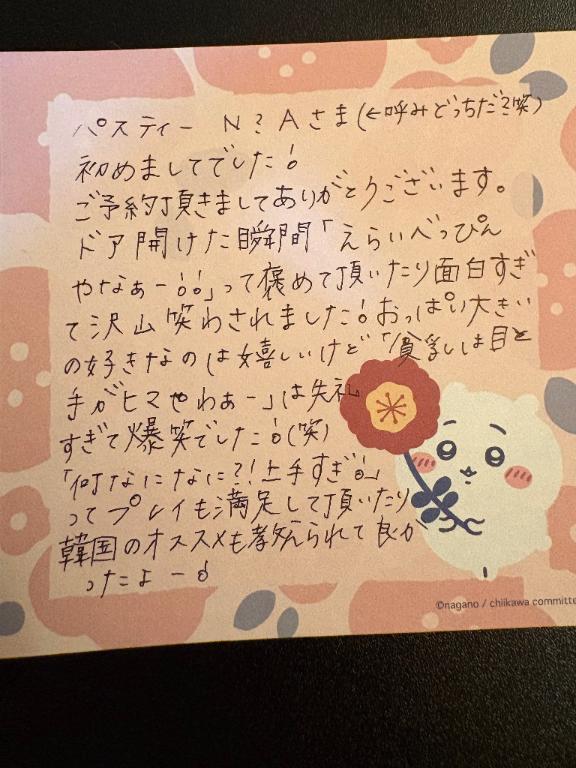 パスティー N?Aさま(←呼みどっちだ?笑)
初めましてでした!
ご予約頂きましてありがとうございます。
ドア開けた瞬間「えらいべっぴん
やなぁー!!」って褒めて頂いたり面白すぎ
て沢山笑わされました!おっぱい大きい
の好きなのは嬉しいけど「貧乳は目と
手がヒマやわぁー」は失礼
すぎて爆笑でした!(笑)
「何なになに?!上手すぎ!」
ってプレイも満足して頂いたり
韓国のオススメも教えられて良か
ったよー!
©nagano / chiikawa committee